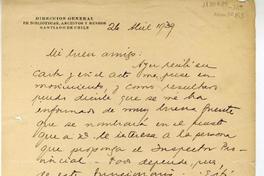 DIRECCION GENERAL
DE BIBLIOTECAS, ARCHIVOS Y MUSEOS
SANTIAGO DE CHILE
26 Abril 1939
Mi buen amigo:
Ayer recibí su
carta y en el acto me puse en
movimiento, y como resultado
puedo decirle que se me ha
informado de muy buena fuente
que se nombrará en el puesto
que a Ud. le interesa a la persona
que proponga el Inspector Pro-
vincial. Todo depende, pues,
de este funcionario.